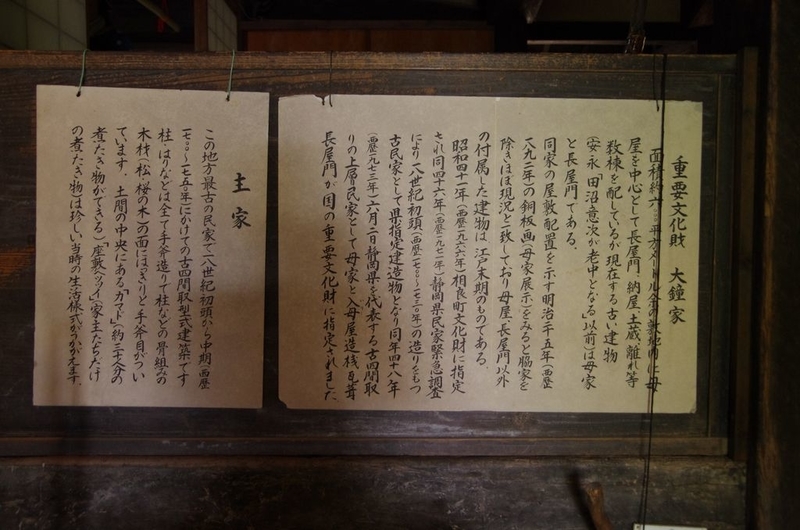 重要文化財 大鐘家
面積約六〇〇〇平方メートル余の敷地内に母
屋を中心として長屋門、納屋、土蔵、離れ等
数棟を配しているが現在する古い建物
(安永「田沼意次が老中となる」以前)は母家
と長屋門である。
同家の屋敷配置を示す明治二十五年(西暦
一八九二年)の銅板画(母家展示)をみると脇家を
除きほぼ現況と一致しており母屋、長屋門以外
の付属した建物は江戸末期のものである。
昭和四十一年(西暦一九六六年)相良町文化財に指定
され同四十六年(西暦一九七一年)静岡県民家緊急調査
により一八世紀初頭(西暦一七〇〇〜一七一〇年)の造りをもつ
古民家として県指定建造物となり同年四十八年
(西暦一九七三年)六月二日静岡県を代表する古四間取
りの上層民家として母家と入母屋造桟瓦葺
長屋門が国の重要文化財に指定されました
主家
この地方最古の民家で一八世紀初頭から中期(西暦
一七〇〇〜一七五〇年)にかけての古四間取型式建築です
柱・はりなどは全て手斧造りで柱などの骨組みの
木材(松、桜の木)の面にはっきりと手斧目がつい
ています。土間の中央にある「カマド」(約三十人分の
煮たき物ができる)「座敷クッイ」(家主たちだけ
の煮たき物)は珍しい当時の生活様式がうかがえます。